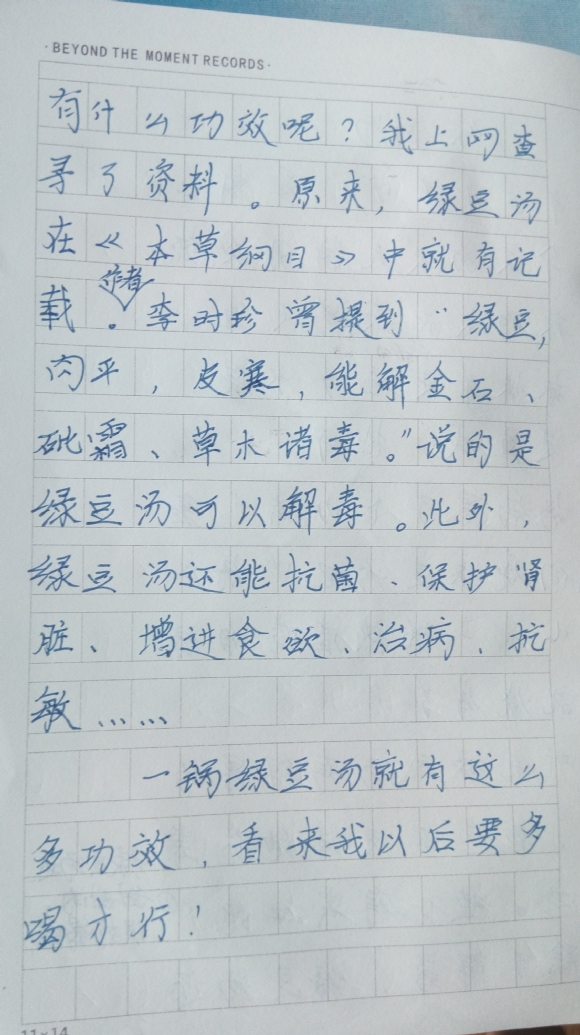 ·BEYOND THE MOMENT RECORDS·
有什么功效呢？我上网查
寻了资料。原来，绿豆汤
在《本草纲目》中就有记
作者
载。李时珍曾提到“绿豆,
肉平，皮寒，能解金石、
砒霜、草木诸毒。”说的是
绿豆汤可以解毒。此外，
绿豆汤还能抗菌、保护肾
脏、增进食欲、治病、抗
敏……
一锅绿豆汤就有这么
多功效，看来我以后要多
喝才行！
11×14